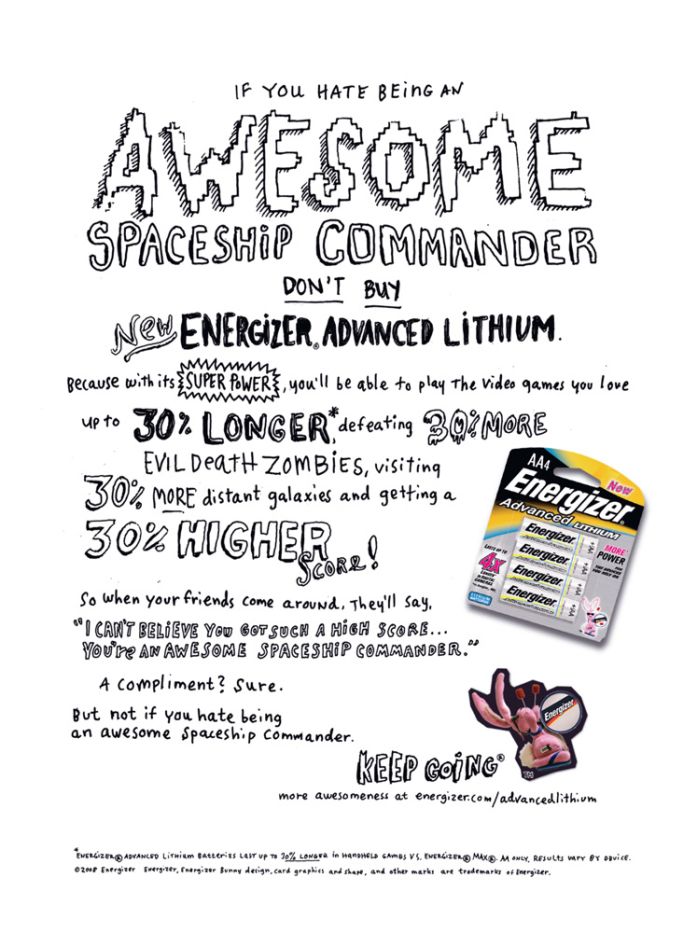 IF YOU HATE BEING AN
AWESOME
SPACESHIP COMMANDER
DON'T BUY
NEW ENERGIZER® ADVANCED LITHIUM.
Because with its SUPER POWER, you'll be able to play The Video games you love
up to 30% LONGER,* defeating 30% MORE
EVIL DEATH ZOMBIES, visiting
30% MORE distant galaxies and getting a
30% HIGHER
SCORE!
So when your friends come around, They'll say,
"I CAN'T BELIEVE YOU GOT SUCH A HIGH SCORE...
YOU'RE AN AWESOME SPACESHIP COMMANDER."
A compliment? Sure.
But not if you hate being
an awesome Spaceship Commander.
KEEP GOING®
more awesomeness at energizer.com/advancedlithium
AA4
New
Energizer®
Advanced LITHIUM
Energizer
Energizer
Energizer
Energizer
LASTS UP TO
4X
MORE
POWER
Energizer
*ENERGIZER® ADVANCED LITHIUM BATTERIES LAST UP TO 30% LONGER IN HANDHELD GAMES VS. ENERGIZER® MAX®. AA ONLY. RESULTS VARY BY DEVICE.
©2008 Energizer Energizer, Energizer Bunny design, card graphics and shape, and other marks are trademarks of Energizer.